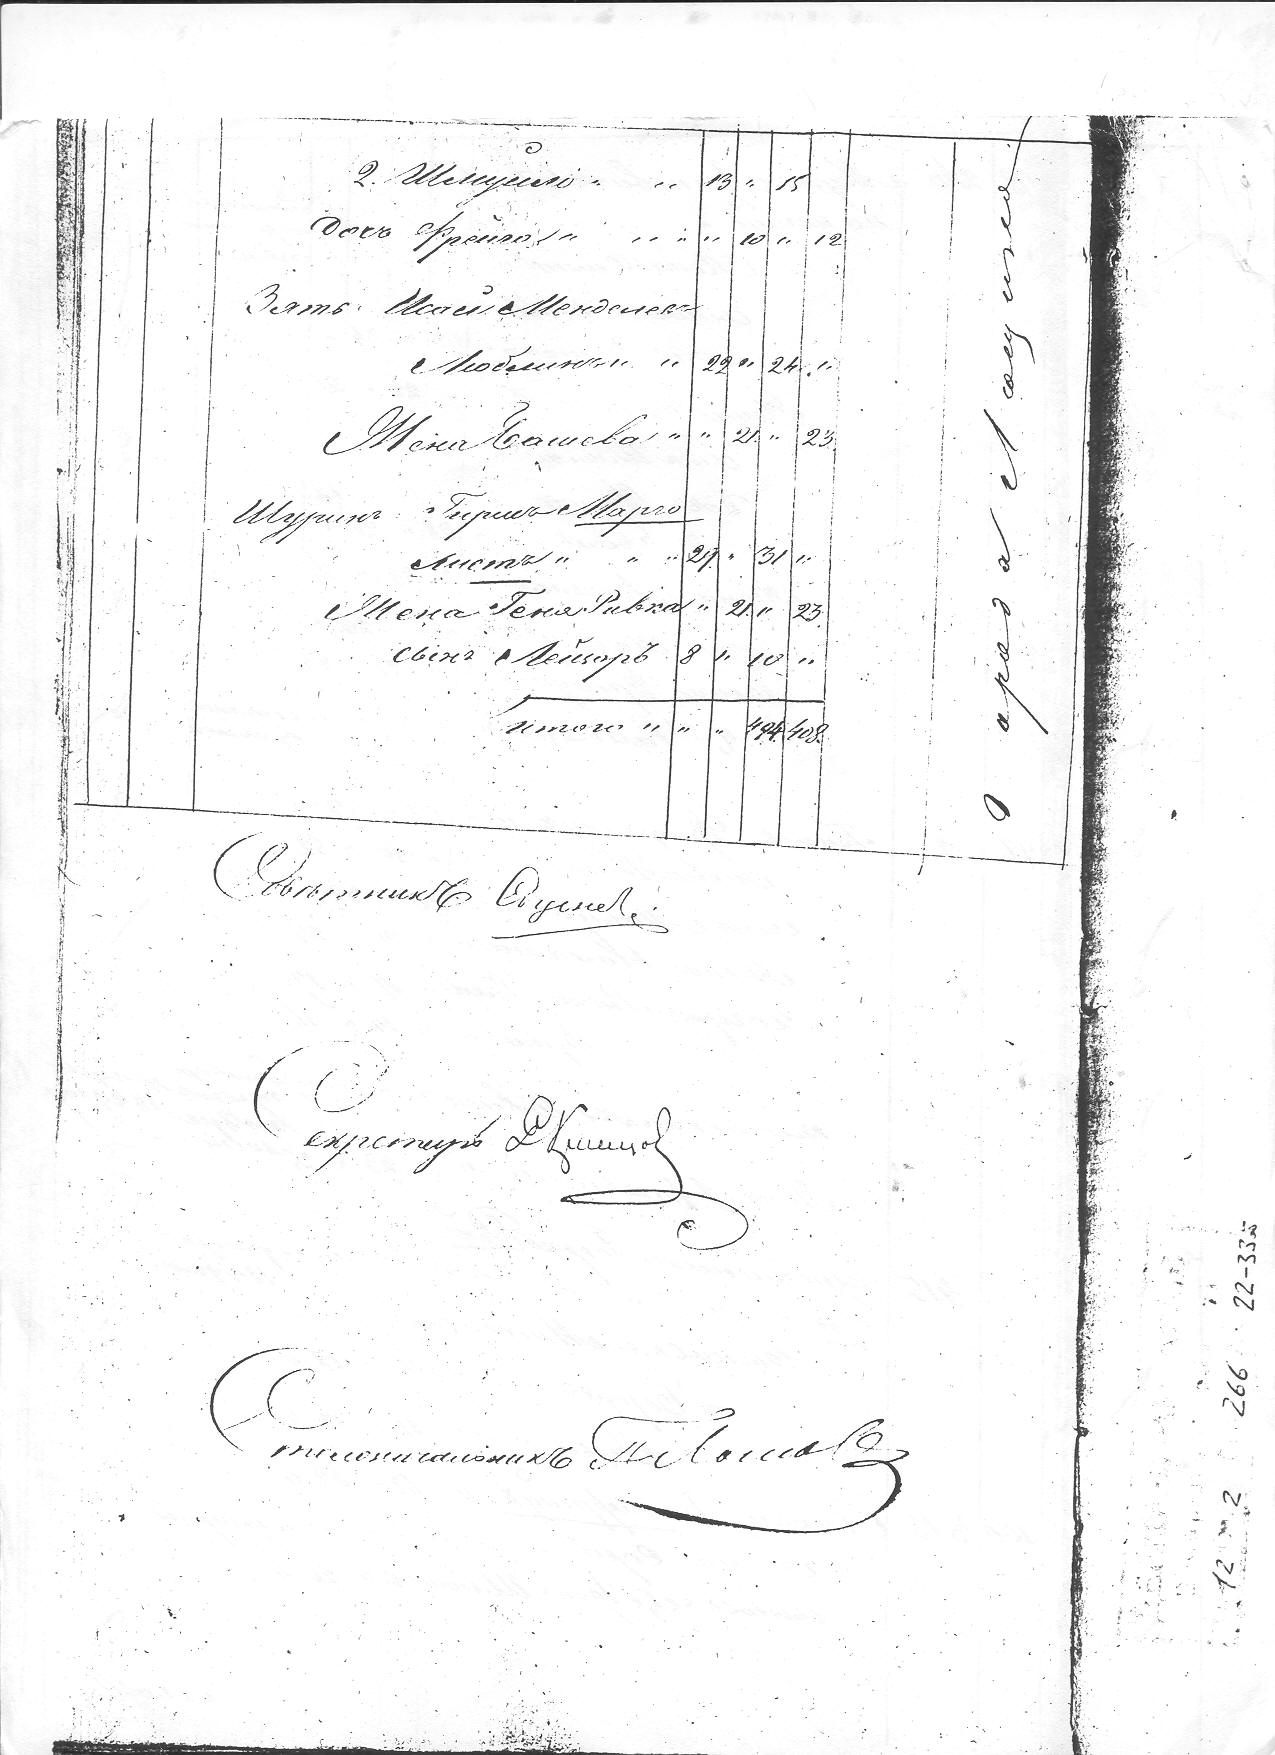 2. Шмуйло " " 13 " 15
Дочь Фрейга " " " " 10 " 12
Зять Исай Менделев
Люблинъ " " 22 " 24 "
Жена Башева " " 21 " 23
Шуринъ Гиршъ Марго
листъ " " " 29 " 31 "
Жена Геня Ривка " 21 " 23
сынъ Лейзоръ 8 " 10 "
Итого " " " 494 408
города
Совѣтникъ
Секретарь
Столоначальникъ
12 m 2 266 22-335